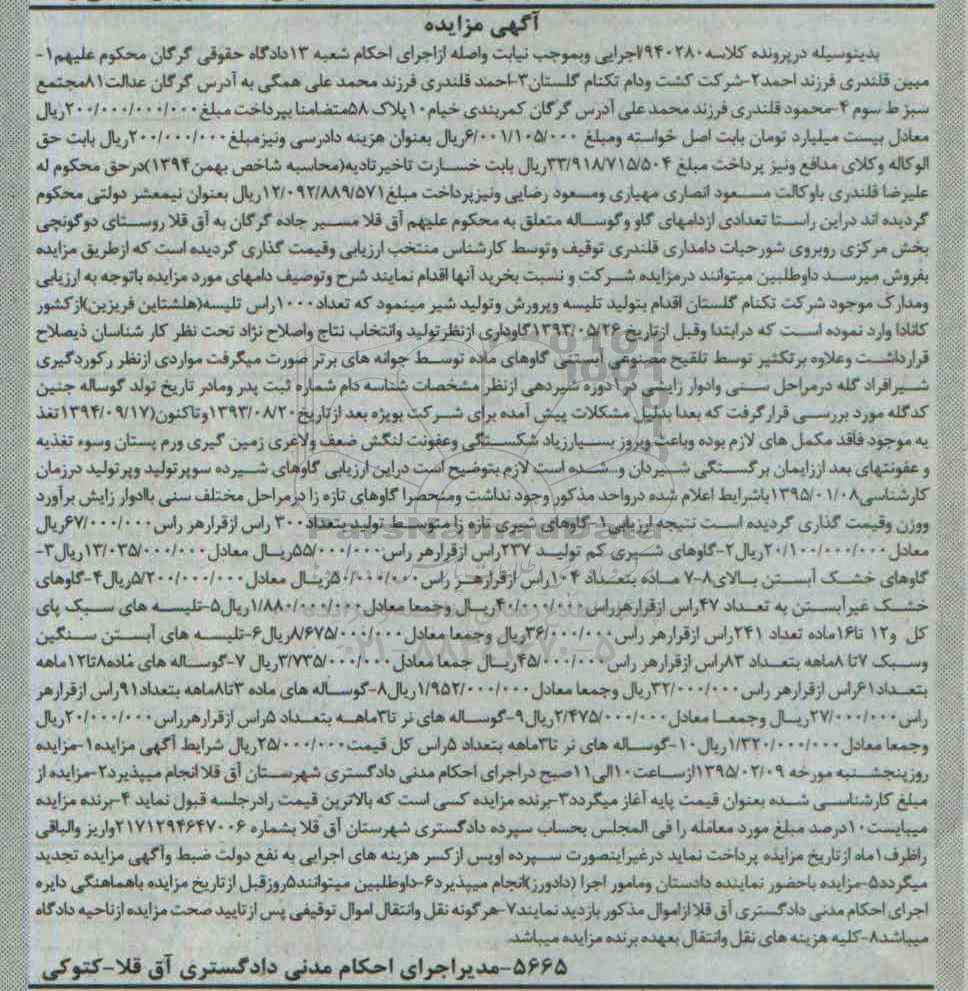 آگهی مزایده
بدینوسیله درپرونده کلاسه ۹۴۰۲۸۰/اجرایی وبموجب نیابت واصله ازاجرای احکام شعبه ۱۳دادگاه حقوقی گرگان محکوم علیهم۱-
مبین قلندری فرزند احمد۲-شرکت کشت ودام تکنام گلستان۳-احمد قلندری فرزند محمد علی همگی به آدرس گرگان عدالت۸۱مجتمع
سبز ط سوم ۴-محمود قلندری فرزند محمد علی آدرس گرگان کمربندی خیام۱۰پلاک۵۸متضامنا بپرداخت مبلغ۲۰۰/۰۰۰/۰۰۰/۰۰۰ریال
معادل بیست میلیارد تومان بابت اصل خواسته ومبلغ ۶/۰۰۱/۱۰۵/۰۰۰ریال بعنوان هزینه دادرسی ونیزمبلغ۲۰۰/۰۰۰/۰۰۰ریال بابت حق
الوکاله وکلای مدافع ونیز پرداخت مبلغ ۳۳/۹۱۸/۷۱۵/۵۰۴ریال بابت خسارت تاخیرتادیه(محاسبه شاخص بهمن۱۳۹۴)درحق محکوم له
علیرضا قلندری باوکالت مسعود انصاری مهیاری ومسعود رضایی ونیزپرداخت مبلغ۱۲/۰۹۲/۸۸۹/۵۷۱ریال بعنوان نیمعشر دولتی محکوم
گردیده اند دراین راستا تعدادی ازدامهای گاو وگوساله متعلق به محکوم علیهم آق قلا مسیر جاده گرگان به آق قلا روستای دوگونچی
بخش مرکزی روبروی شورحیات دامداری قلندری توقیف وتوسط کارشناس منتخب ارزیابی وقیمت گذاری گردیده است که ازطریق مزایده
بفروش میرسد داوطلبین میتوانند درمزایده شرکت و نسبت بخرید آنها اقدام نمایند شرح وتوصیف دامهای مورد مزایده باتوجه به ارزیابی
ومدارک موجود شرکت تکنام گلستان اقدام بتولید تلیسه وپرورش وتولید شیر مینمود که تعداد۱۰۰۰راس تلیسه(هلشتاین فریزین)ازکشور
کانادا وارد نموده است که درابتدا وقبل ازتاریخ ۱۳۹۳/۰۵/۲۶گاوداری ازنظرتولید وانتخاب نتاج واصلاح نژاد تحت نظر کار شناسان ذیصلاح
قرارداشت وعلاوه برتکثیر توسط تلقیح مصنوعی آبستنی گاوهای ماده توسط جوانه های برتر صورت میگرفت مواردی ازنظر رکوردگیری
شیرافراد گله درمراحل سنی وادوار زایشی در۱دوره شیردهی ازنظر مشخصات شناسه دام شماره ثبت پدر ومادر تاریخ تولد گوساله جنین
کدگله مورد بررسی قرارگرفت که بعدا بدلیل مشکلات پیش آمده برای شرکت بویژه بعد ازتاریخ۱۳۹۳/۰۸/۲۰وتاکنون(۱۳۹۴/۰۹/۱۷تغذ
یه موجود فاقد مکمل های لازم بوده وباعث وبروز بسیارزیاد شکستگی وعفونت لنگش ضعف ولاغری زمین گیری ورم پستان وسوء تغذیه
و عفونتهای بعد اززایمان برگستگی شیردان و.شده است لازم بتوضیح است دراین ارزیابی گاوهای شیرده سوپرتولید وپرتولید درزمان
کارشناسی۱۳۹۵/۰۱/۰۸باشرایط اعلام شده درواحد مذکور وجود نداشت ومنحصرا گاوهای تازه زا درمراحل مختلف سنی باادوار زایش برآورد
ووزن وقیمت گذاری گردیده است نتیجه ارزیابی۱-گاوهای شیری تازه زا متوسط تولید بتعداد۳۰۰ راس ازقرارهر راس۶۷/۰۰۰/۰۰۰ریال
معادل۲۰/۱۰۰/۰۰۰/۰۰۰ریال۲-گاوهای شیری کم تولید ۲۳۷راس ازقرارهر راس۵۵/۰۰۰/۰۰۰ریال معادل۱۳/۰۳۵/۰۰۰/۰۰۰ریال۳-
گاوهای خشک آبستن بالای۸-۷ ماده بتعداد ۱۰۴راس ازقرارهر راس۵۰/۰۰۰/۰۰۰ریال معادل۵/۲۰۰/۰۰۰/۰۰۰ریال۴-گاوهای
خشک غیرآبستن به تعداد ۴۷راس ازقرارهرراس۴۰/۰۰۰/۰۰۰ریال وجمعا معادل۱/۸۸۰/۰۰۰/۰۰۰ریال۵-تلیسه های سبک پای
کل و۱۲ تا۱۶ماده تعداد ۲۴۱راس ازقرارهر راس۳۶/۰۰۰/۰۰۰ریال وجمعا معادل۸/۶۷۵/۰۰۰/۰۰۰ریال۶-تلیسه های آبستن سنگین
وسبک ۷تا ۸ماهه بتعداد ۸۳راس ازقرارهر راس۴۵/۰۰۰/۰۰۰ریال جمعا معادل۳/۷۳۵/۰۰۰/۰۰۰ریال ۷-گوساله های ماده۸تا۱۲ماهه
بتعداد۶۱راس ازقرارهر راس۳۲/۰۰۰/۰۰۰ریال وجمعا معادل۱/۹۵۲/۰۰۰/۰۰۰ریال۸-گوساله های ماده ۳تا۸ماهه بتعداد۹۱راس ازقرارهر
راس۲۷/۰۰۰/۰۰۰ریال وجمعا معادل۲/۴۷۵/۰۰۰/۰۰۰ریال۹-گوساله های نر تا۳ماهه بتعداد ۵راس ازقرارهرراس۲۰/۰۰۰/۰۰۰ریال
وجمعا معادل۱/۳۲۰/۰۰۰/۰۰۰ریال۱۰-گوساله های نر تا۳ماهه بتعداد ۵راس کل قیمت۲۵/۰۰۰/۰۰۰ریال شرایط آگهی مزایده۱-مزایده
روزپنجشنبه مورخه ۱۳۹۵/۰۲/۰۹ازساعت۱۰الی۱۱صبح دراجرای احکام مدنی دادگستری شهرستان آق قلا انجام میپذیرد۲-مزایده از
مبلغ کارشناسی شده بعنوان قیمت پایه آغاز میگردد۳-برنده مزایده کسی است که بالاترین قیمت رادرجلسه قبول نماید ۴-برنده مزایده
میبایست۱۰درصد مبلغ مورد معامله را فی المجلس بحساب سپرده دادگستری شهرستان آق قلا بشماره ۲۱۷۱۲۹۴۶۴۷۰۰۶واریز والباقی
راظرف۱ماه ازتاریخ مزایده پرداخت نماید درغیراینصورت سپرده اوپس ازکسر هزینه های اجرایی به نفع دولت ضبط وآگهی مزایده تجدید
میگردد۵-مزایده باحضور نماینده دادستان ومامور اجرا (دادورز)انجام میپذیرد۶-داوطلبین میتوانند۵روزقبل ازتاریخ مزایده باهماهنگی دایره
اجرای احکام مدنی دادگستری آق قلا ازاموال مذکور بازدید نمایند۷-هرگونه نقل وانتقال اموال توقیفی پس ازتایید صحت مزایده ازناحیه دادگاه
میباشد۸-کلیه هزینه های نقل وانتقال بعهده برنده مزایده میباشد.
۵۶۶۵-مدیراجرای احکام مدنی دادگستری آق قلا-کتوکی